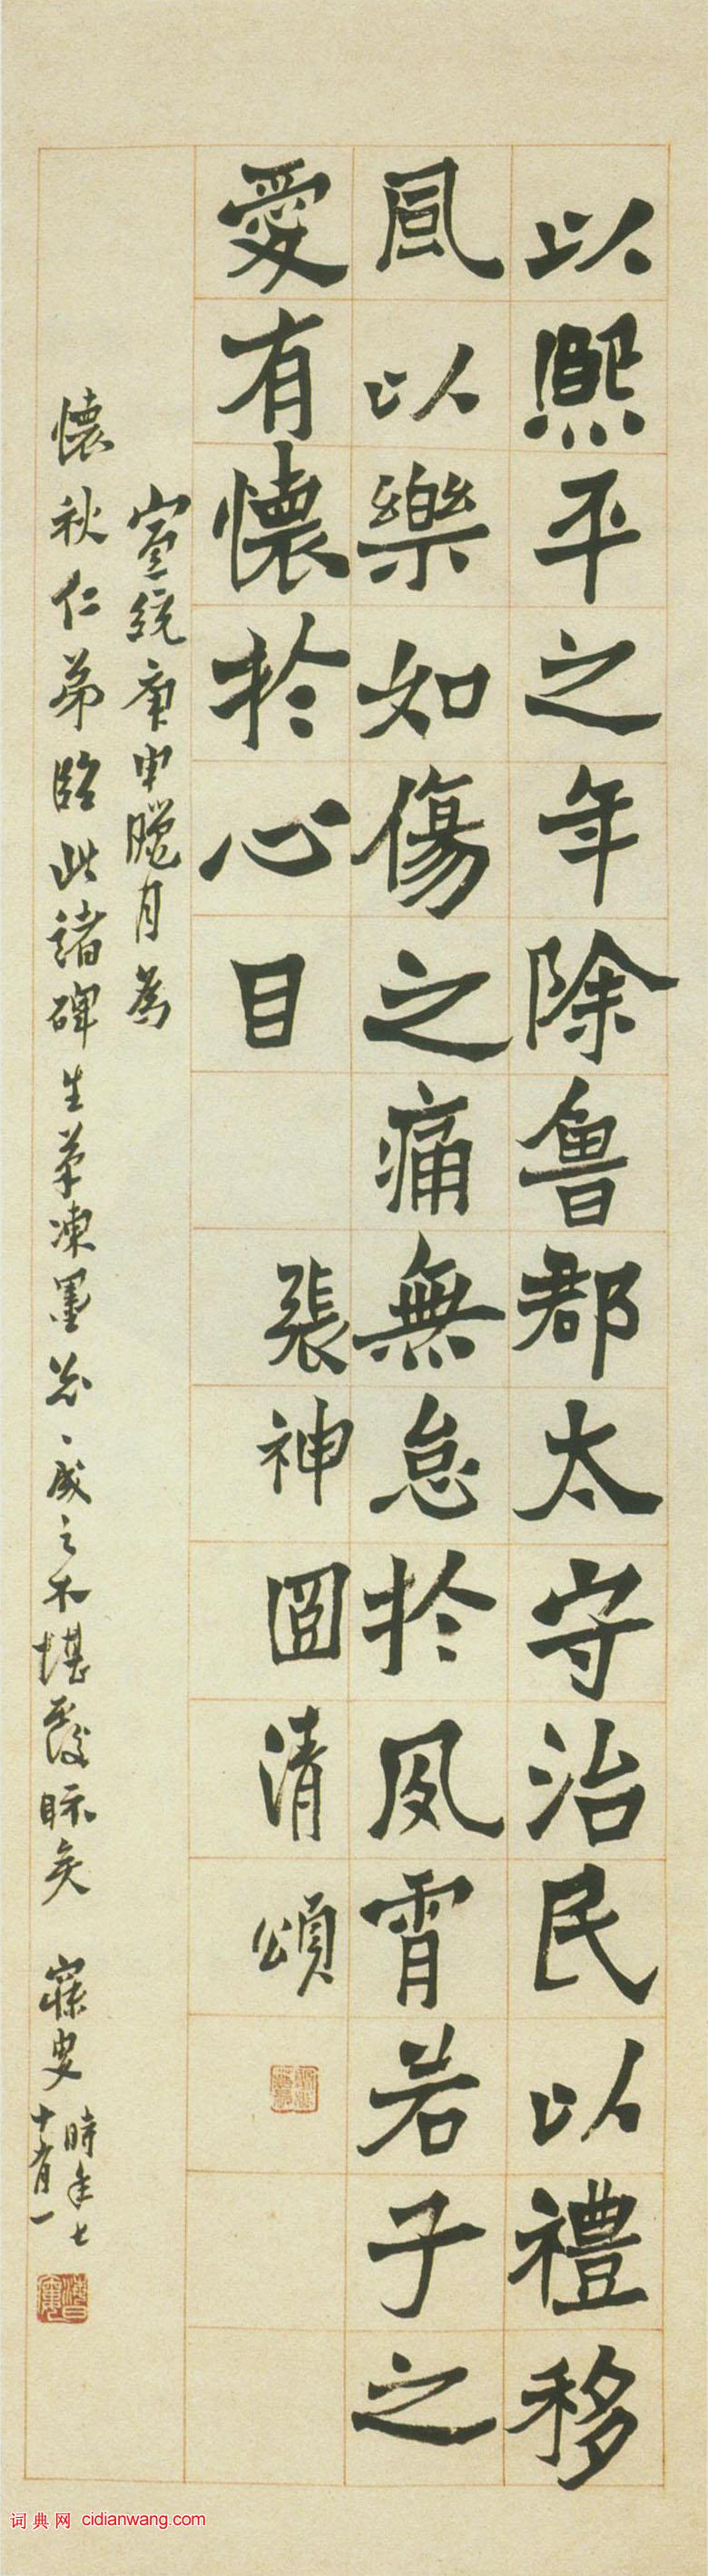 以熙平之年除魯郡太守治民以禮移
風以樂如傷之痛無怠於夙宵若子之
愛有懷於心目
張神囧清頌
宣統庚申臘月為
懷秋仁弟臨此諸碑生筆凍墨忩、成之不堪覆眎矣 寐叟 時年七
十有一
词典网 cidianwang.com